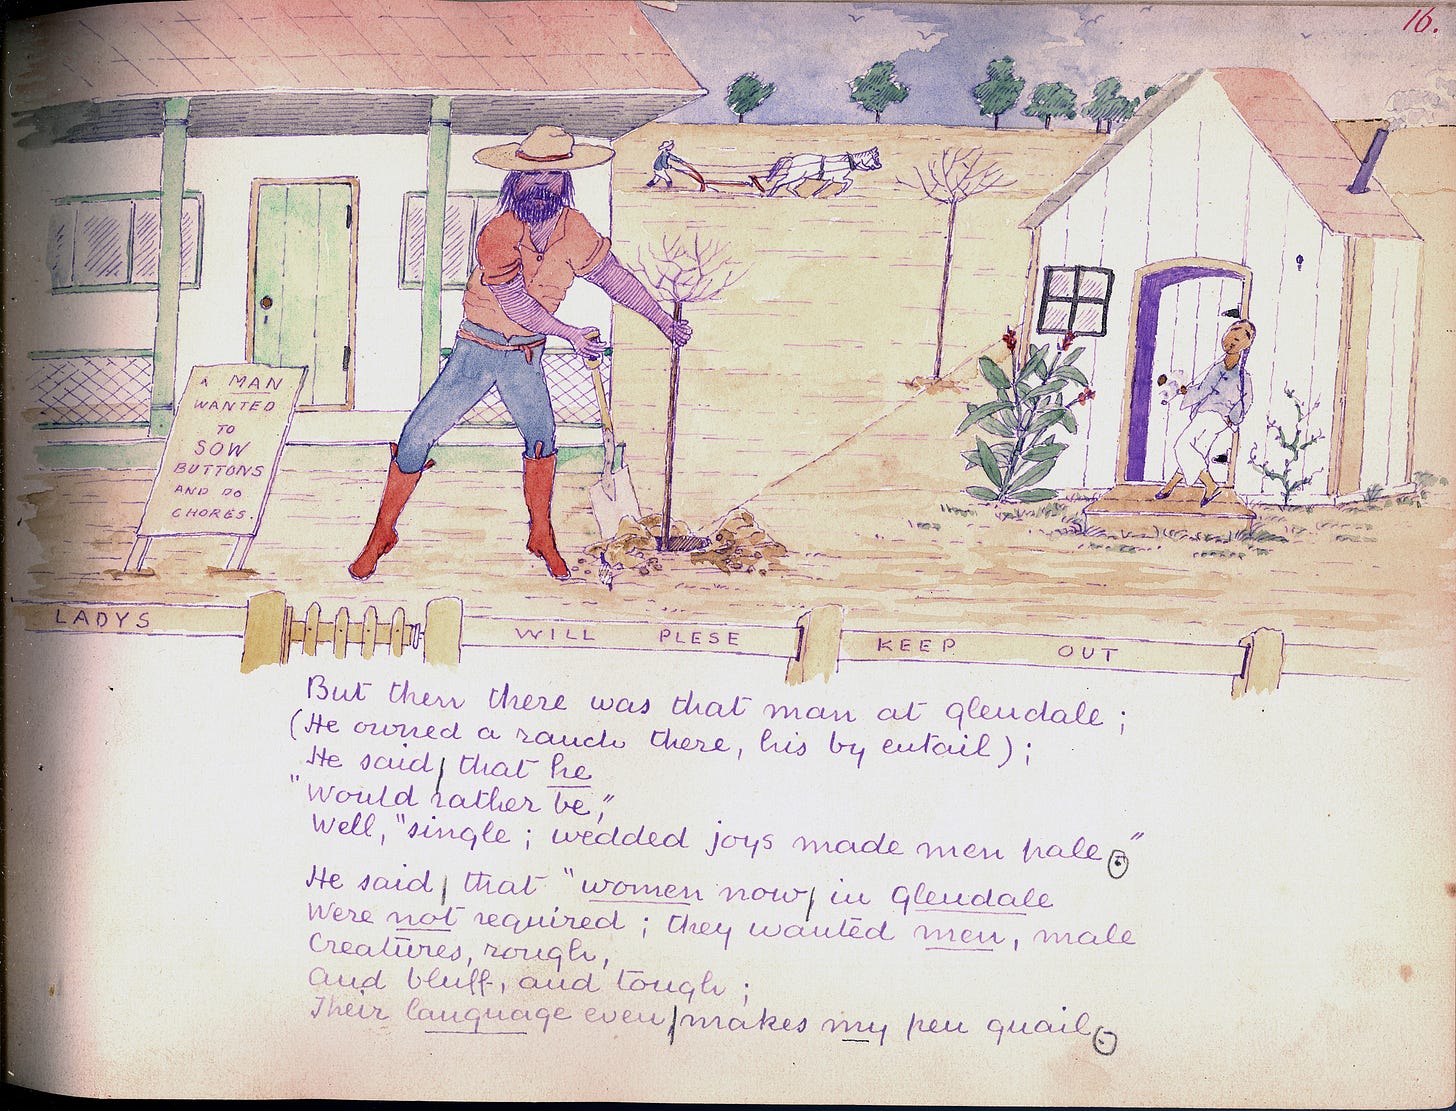 16.
A MAN
WANTED
TO
SOW
BUTTONS
AND DO
CHORES.
LADYS WILL PLESE KEEP OUT
But then there was that man at Glendale;
(He owned a ranch there, his by entail);
He said, that he
"Would rather be,"
Well, "single; wedded joys made men pale."
He said, that "women now, in Glendale
Were not required; they wanted men, male
Creatures, rough,
And bluff, and tough;
Their language even, makes my pen quail.